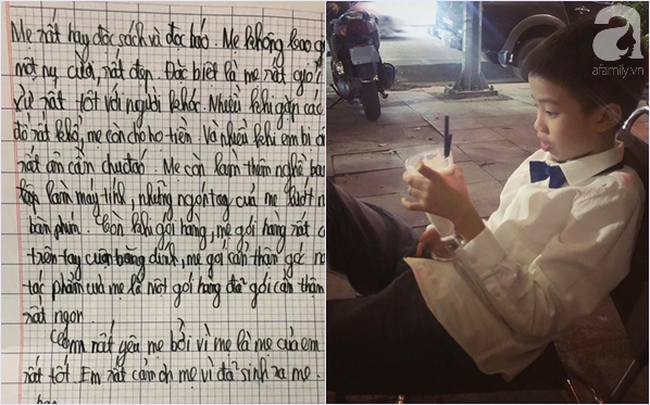 Mẹ rất hay đọc sách và đọc báo. Mẹ không bao
một nụ cười, rất đẹp. Đặc biệt là mẹ rất giỏi
xử rất tốt với người khác. Nhiều khi gặp các
đó rất khổ, mẹ còn cho họ tiền. Và nhiều khi em bị
rất ân cần chu đáo. Mẹ còn làm thêm nghề
làm máy tính, những ngón tay của mẹ lướt
bàn phím. Còn khi gói hàng, mẹ gói hàng rất
trên tay cuộn băng dính, mẹ gói cẩn thận góc
tác phẩm của mẹ là một gói hàng đã gói cẩn thận
rất ngon.
Em rất yêu mẹ bởi vì mẹ là mẹ của em
rất tốt. Em rất cảm ơn mẹ vì đã sinh ra mẹ.
a
afamily.vn